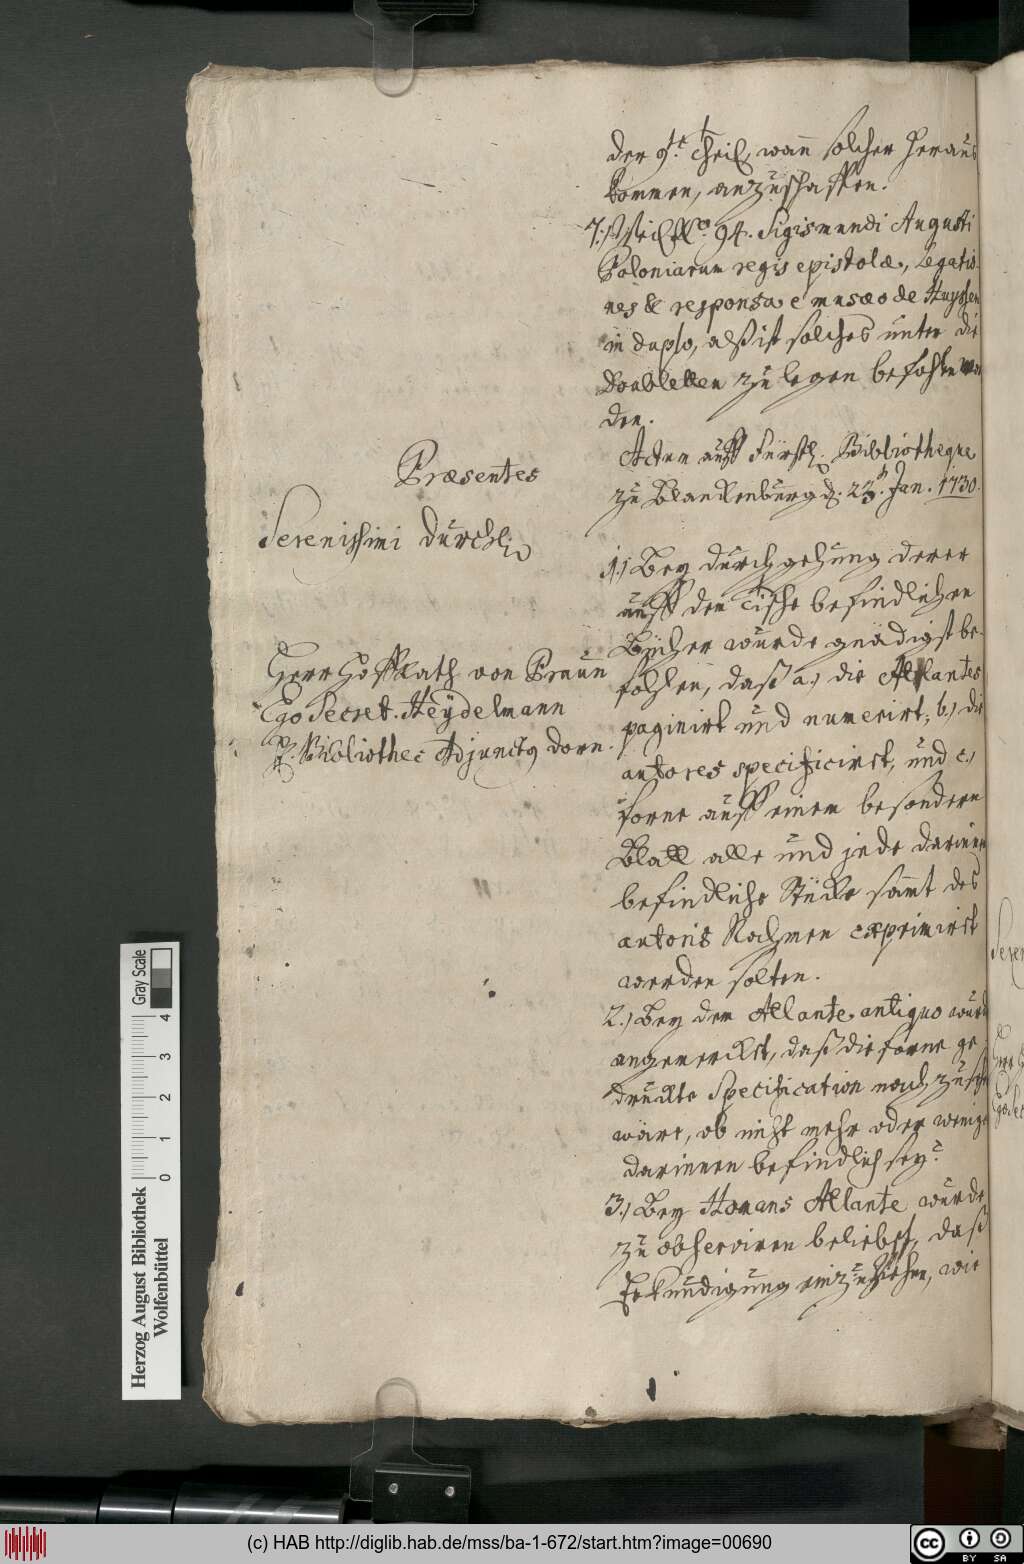 der 9te Theil, wann solcher heraus
kommen, anzuschaffen.
94. Sigismundi Augusti
Poloniarum regis epistolæ, Legatio-
nes & responsa e musæo de Huyssen
in duplo, alß ist solches unter die
Doubletten zu legen befohlen wor
den.
Actum auff Fürstl. Bibliotheque
zu Blanckenburg d. 23t. Jan. 1730.
Præsentes
Serenissimi Durchl.
Herr Hoffrath von Praun
Ego Secret. Heydelmann
Bibliothec Adjunctq Dorn.
1.) Bey durchgehung derer
auff dem Tische befindlichen
Bücher wurde gnädigst be-
fohlen, daß a.) die Atlantes
paginirt und numerirt, b.) die
autores specificirt, und c.)
forne auff einem besondern
Blatt alle und jede darinnen
befindliche Stücke samt des
autoris Nahmen exprimirt
werden solten.
2.) Bey dem Atlante antiquo wurd
angemerckt, daß die forne ge-
druckte Specification nachzusehn
wäre, ob nicht mehr oder weniger
darinnen befindlich sey?
3.) Bey Homans Atlante wurde
zu observiren beliebt, daß
Erkundigung einzuziehen, wie
Herzog August Bibliothek
Wolfenbüttel
0 1 2 3 4
Gray Scale
(c) HAB http://diglib.hab.de/mss/ba-1-672/start.htm?image=00690
cc BY SA